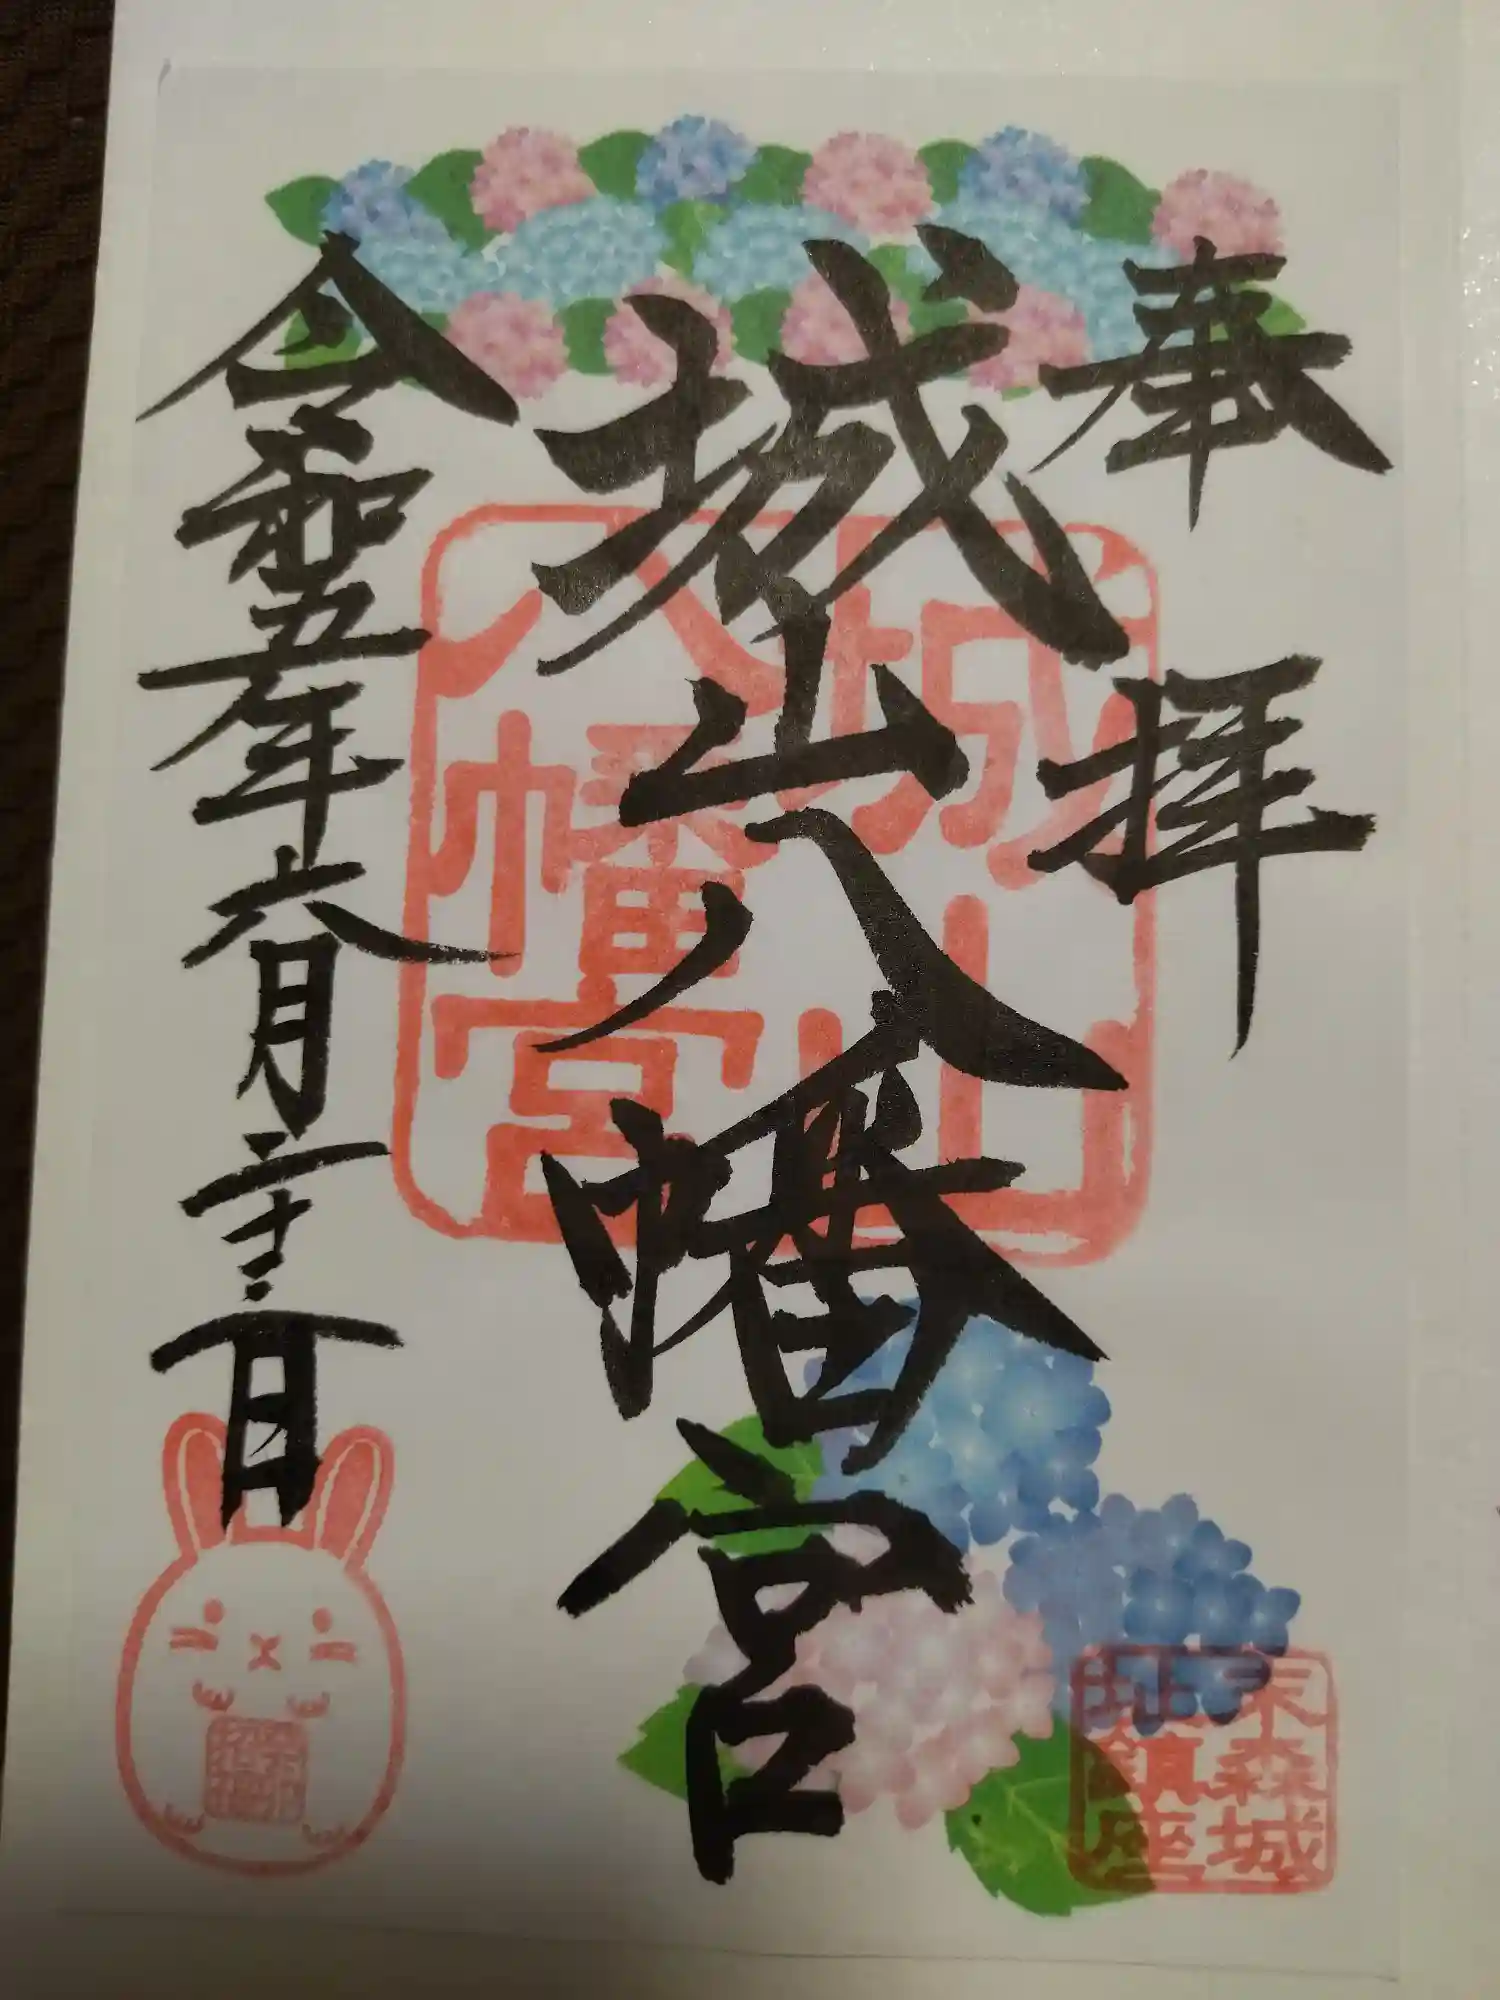 奉拝
城山八幡宮
令和五年六月二十二日
城山
八幡宮
末森城
址鎮座